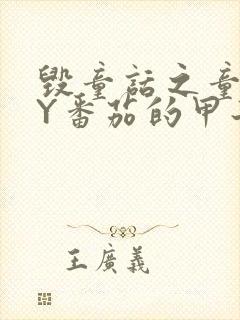 毁童话之童
Y番茄的甲
王廣義